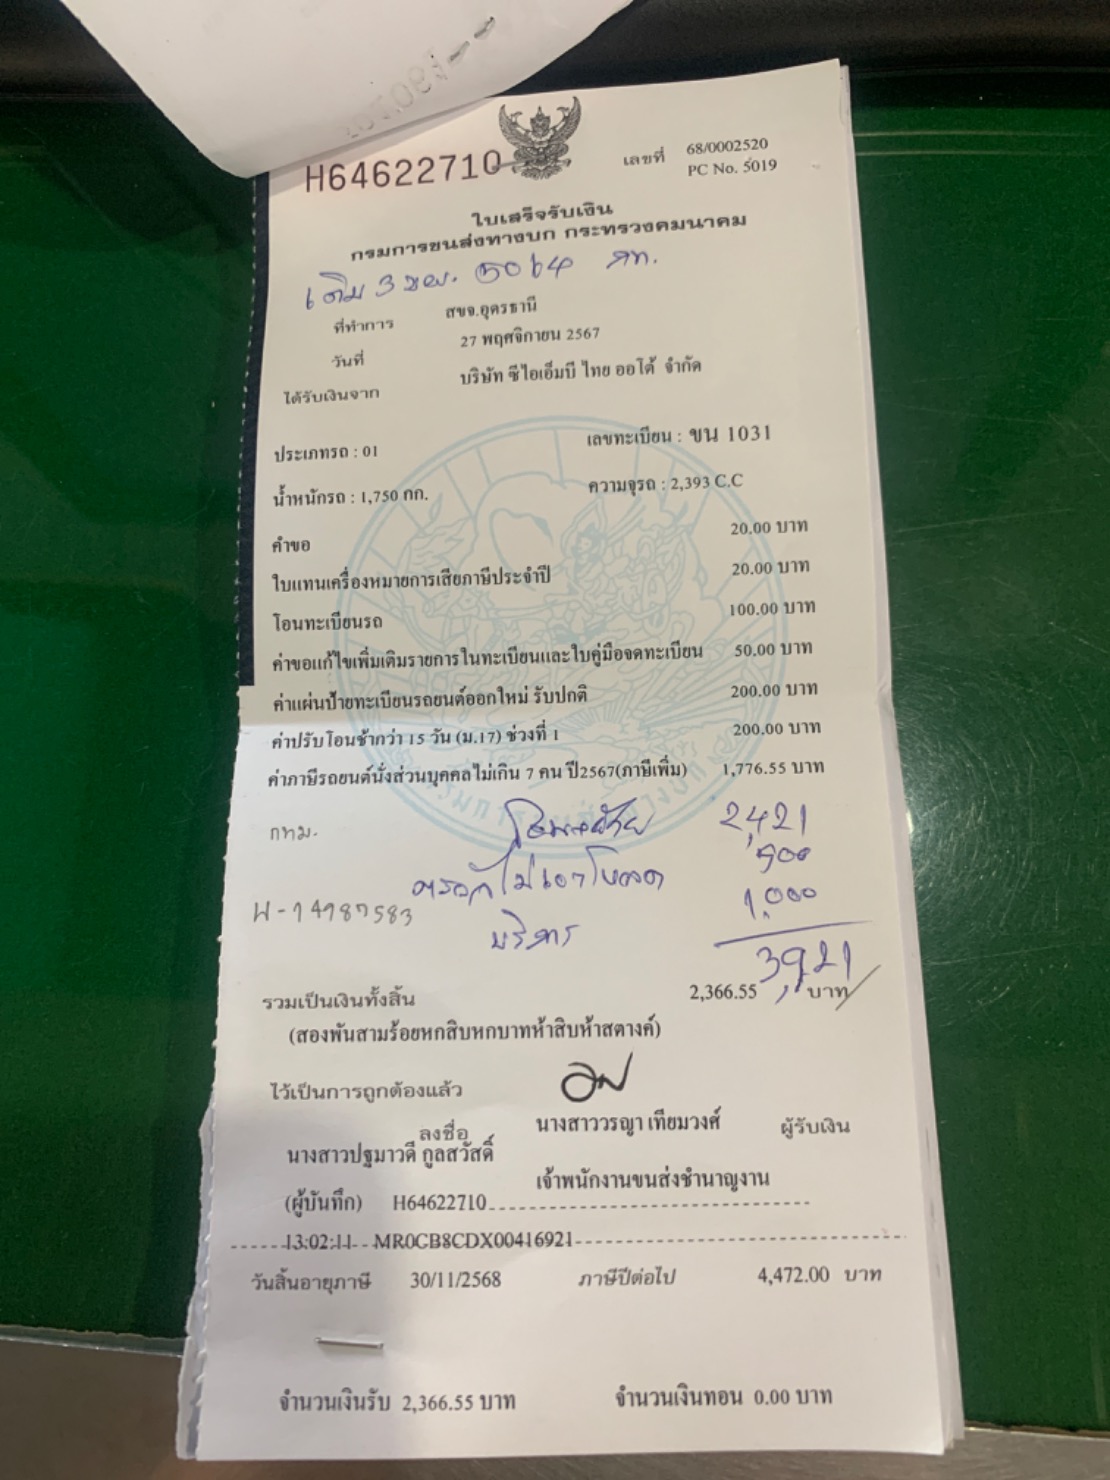 H64622710
เลขที่ 68/0002520
PC No. 5019
ใบเสร็จรับเงิน
กรมการขนส่งทางบก กระทรวงคมนาคม
เดิม 3 ขม. 5064 กท.
ที่ทำการ สขจ.อุดรธานี
วันที่ 27 พฤศจิกายน 2567
ได้รับเงินจาก บริษัท ซีไอเอ็มบี ไทย ออโต้ จำกัด
ประเภทรถ : 01 เลขทะเบียน : ขน 1031
น้ำหนักรถ : 1,750 กก. ความจุรถ : 2,393 C.C
คำขอ 20.00 บาท
ใบแทนเครื่องหมายการเสียภาษีประจำปี 20.00 บาท
โอนทะเบียนรถ 100.00 บาท
ค่าขอแก้ไขเพิ่มเติมรายการในทะเบียนและใบคู่มือจดทะเบียน 50.00 บาท
ค่าแผ่นป้ายทะเบียนรถยนต์ออกใหม่ รับปกติ 200.00 บาท
ค่าปรับโอนช้ากว่า 15 วัน (ม.17) ช่วงที่ 1 200.00 บาท
ค่าภาษีรถยนต์นั่งส่วนบุคคลไม่เกิน 7 คน ปี2567(ภาษีเพิ่ม) 1,776.55 บาท
กทม. 2,421
500
1,000
บริการ
3,921
รวมเป็นเงินทั้งสิ้น 2,366.55 บาท
(สองพันสามร้อยหกสิบหกบาทห้าสิบห้าสตางค์)
ไว้เป็นการถูกต้องแล้ว
ลงชื่อ นางสาววรญา เทียมวงศ์ ผู้รับเงิน
นางสาวปฐมาวดี กูลสวัสดิ์
เจ้าพนักงานขนส่งชำนาญงาน
(ผู้บันทึก) H64622710
13:02:11 MR0CB8CDX00416921
วันสิ้นอายุภาษี 30/11/2568 ภาษีปีต่อไป 4,472.00 บาท
จำนวนเงินรับ 2,366.55 บาท จำนวนเงินทอน 0.00 บาท